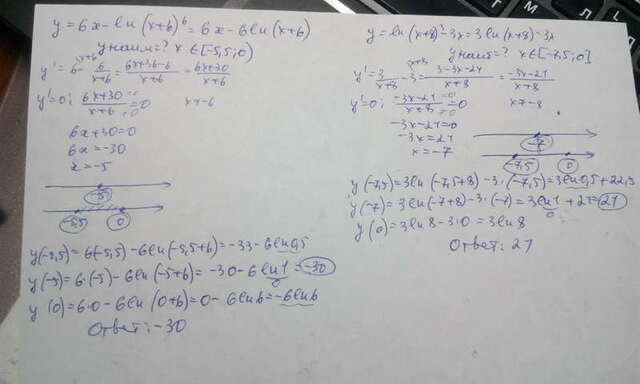 y=6x-ln(x+6)⁶=6x-6ln(x+6)
y наим=? x∈[-5,5;0]
y'=6-6/(x+6)=(6x+36-6)/(x+6)=(6x+30)/(x+6)
y'=0; (6x+30)/(x+6)=0 x≠-6
6x+30=0
6x=-30
x=-5
-5
-5,5 0
y(-5,5)=6(-5,5)-6ln(-5,5+6)=-33-6ln0,5
y(-5)=6·(-5)-6ln(-5+6)=-30-6ln1=-30
0
y(0)=6·0-6ln(0+6)=0-6ln6=-6ln6
Ответ: -30
y=ln(x+8)³-3x=3ln(x+8)-3x
y наиб=? x∈[-7,5;0]
y'=3/(x+8)-3=(3-3x-24)/(x+8)=(-3x-21)/(x+8)
y'=0; (-3x-21)/(x+8)=0 x≠-8
-3x-21=0
-3x=21
x=-7
-7
-7,5 0
y(-7,5)=3ln(-7,5+8)-3·(-7,5)=3ln0,5+22,5
y(-7)=3ln(-7+8)-3·(-7)=3ln1+21=21
0
y(0)=3ln8-3·0=3ln8
Ответ: 21